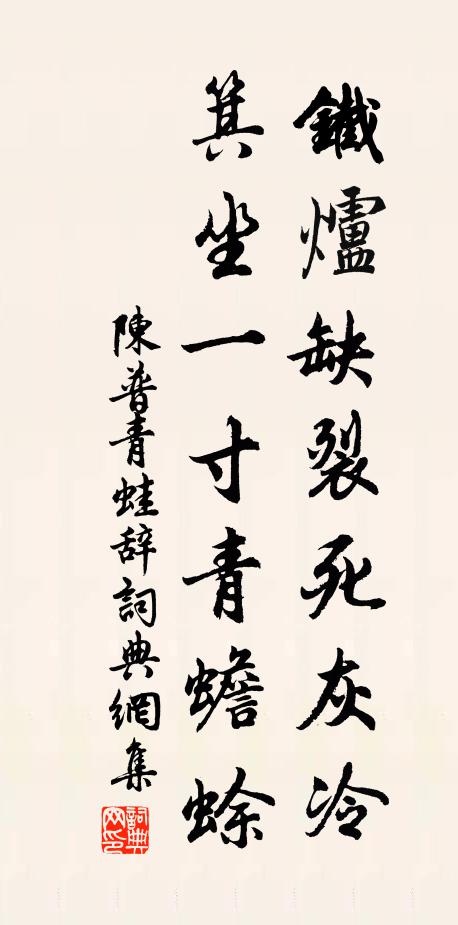 鐵爐缺裂死灰冷
箕坐一寸青蟾蜍
陳普青蛙辞詞典網集
詞典网印